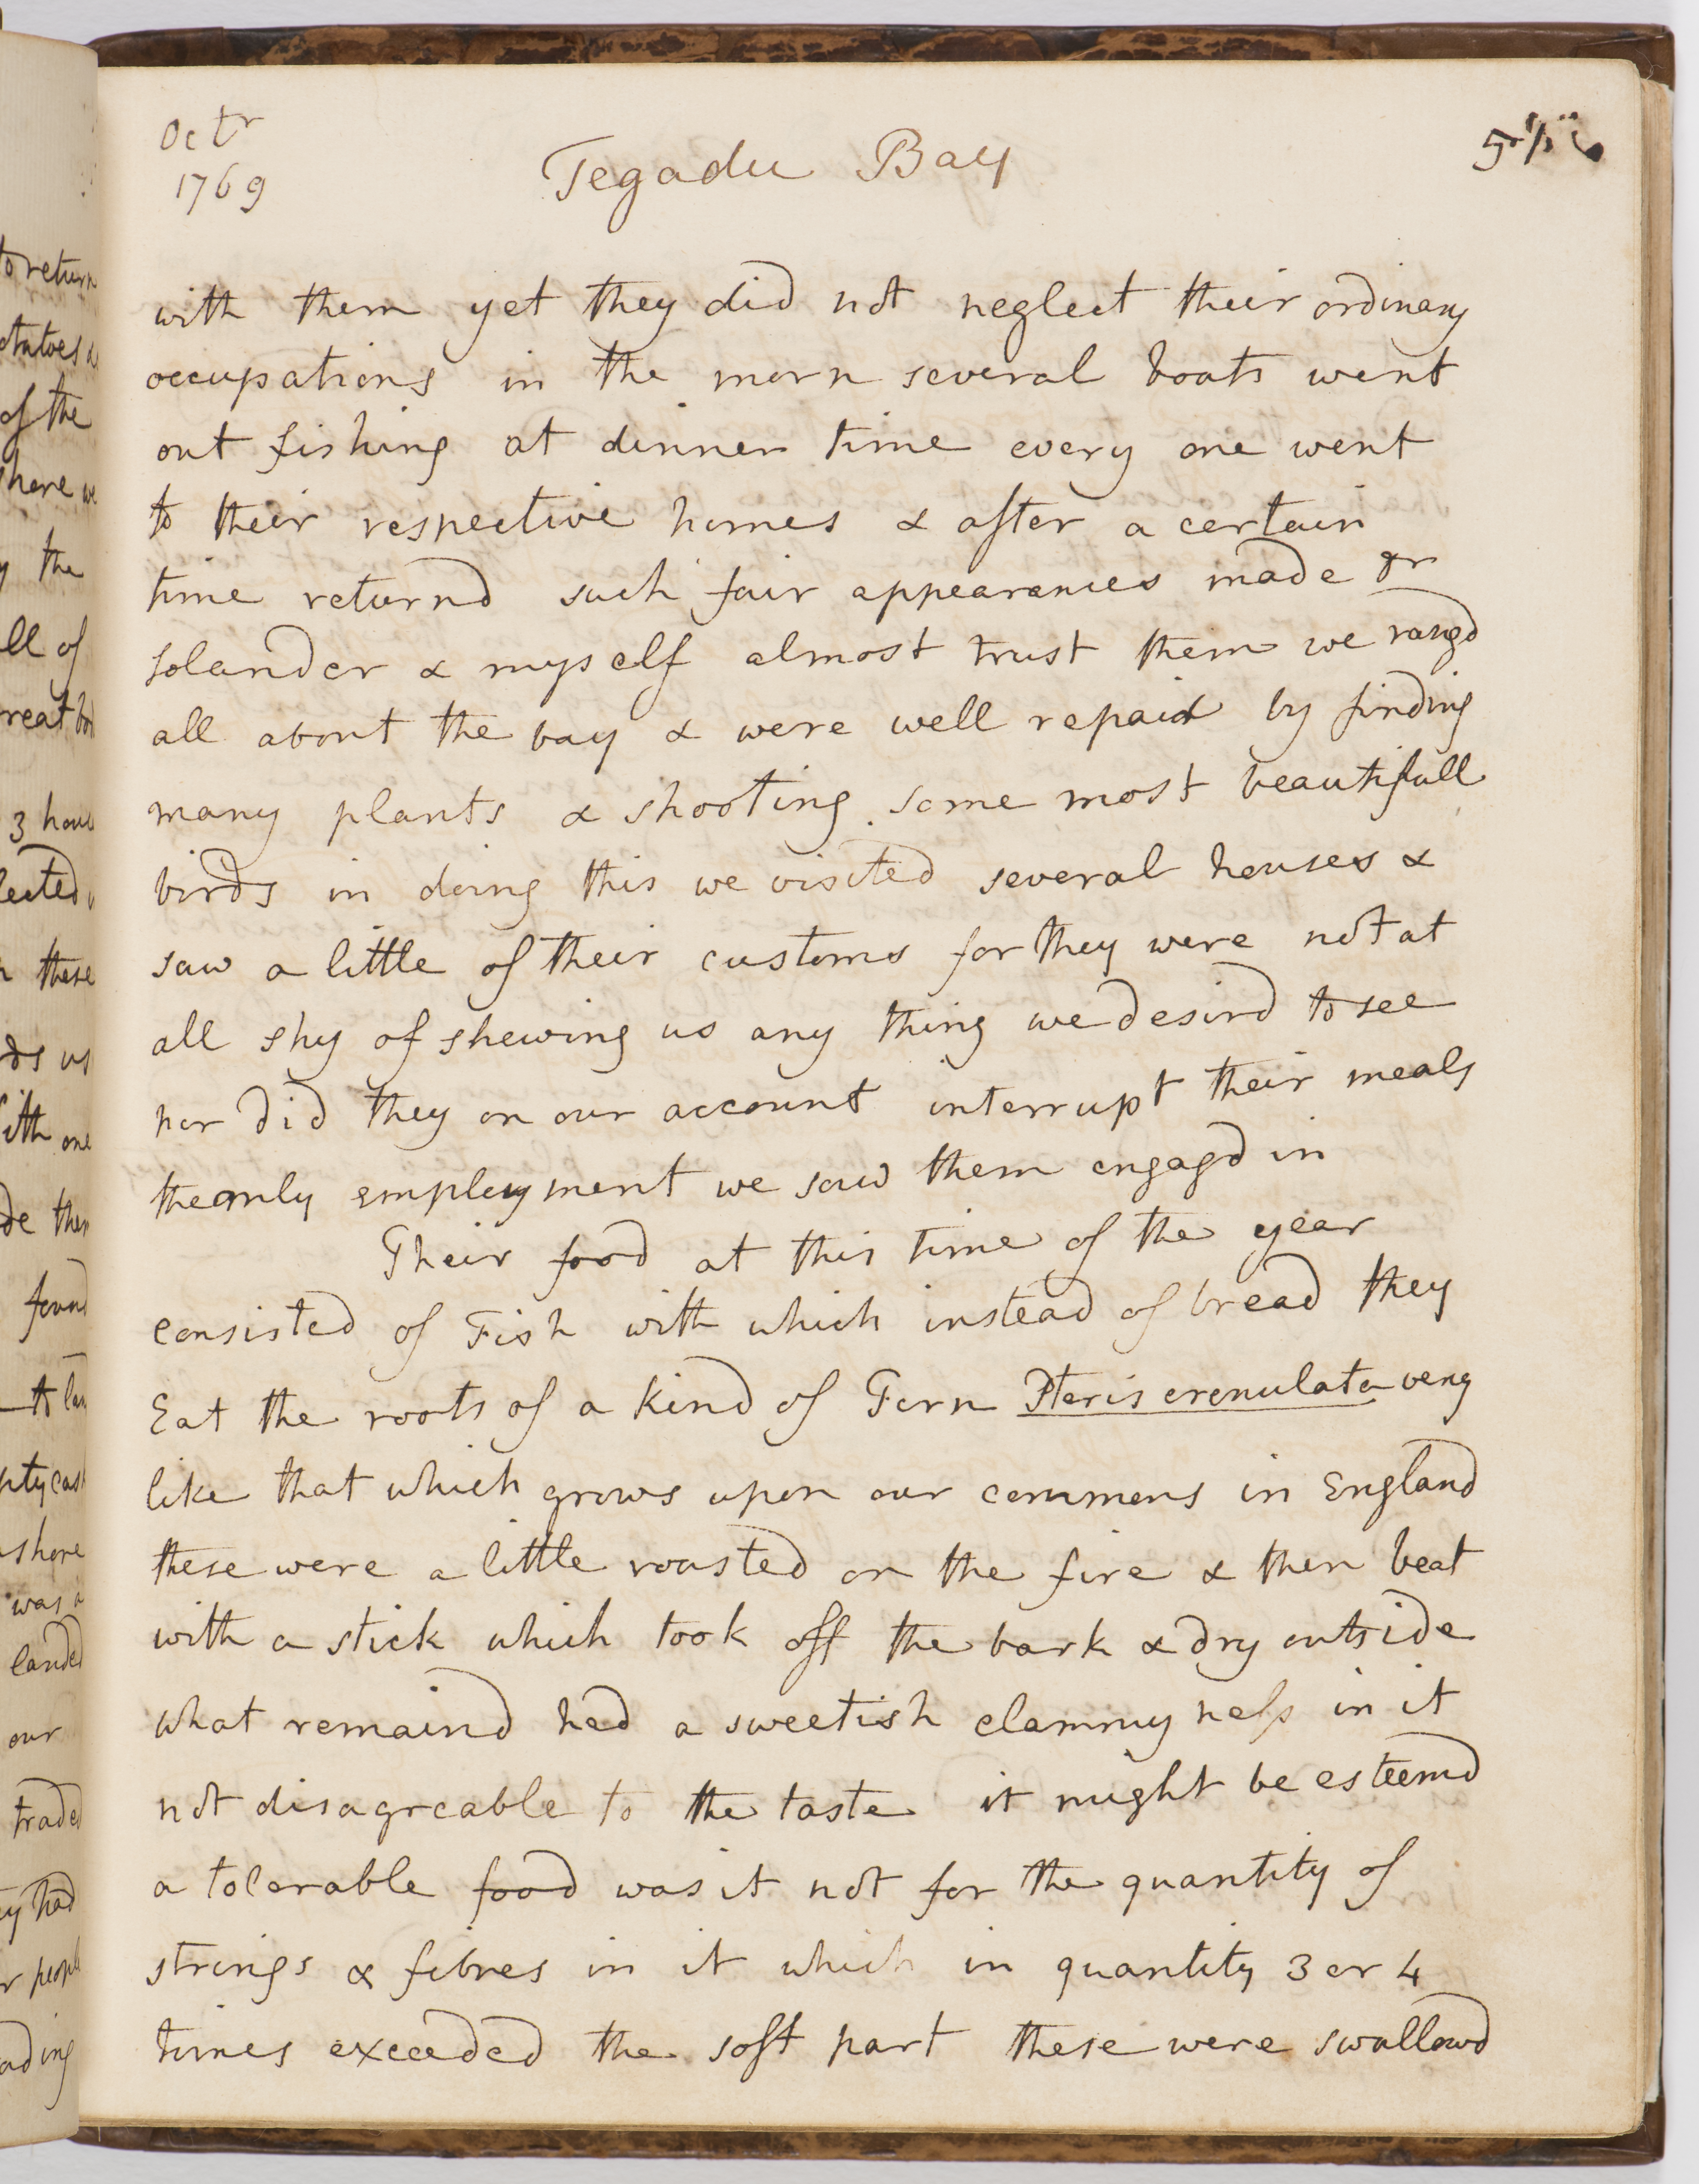 Octr
1769
Tegadu Bay
with them yet they did not neglect their ordinary
occupations in the morn several boats went
out fishing at dinner time every one went
to their respective homes & after a certain
time returnd such fair appearances made Dr
Solander & myself almost trust them we rangd
all about the bay & were well repaid by finding
many plants & shooting some most beautifull
birds in doing this we visited several houses &
saw a little of their customs for they were not at
all shy of shewing us any thing we desird to see
nor did they on our account interrupt their meals
the only employment we saw them engagd in
Their food at this time of the year
consisted of Fish with which instead of bread they
Eat the roots of a kind of Fern Pteris crenulata very
like that which grows upon our commons in England
these were a little roasted on the fire & then beat
with a stick which took off the bark & dry outside
what remaind had a sweetish clammyness in it
not disagreable to the taste it might be esteemd
a tolerable food was it not for the quantity of
strings & fibres in it which in quantity 3 or 4
times exceeded the soft part these were swallowd